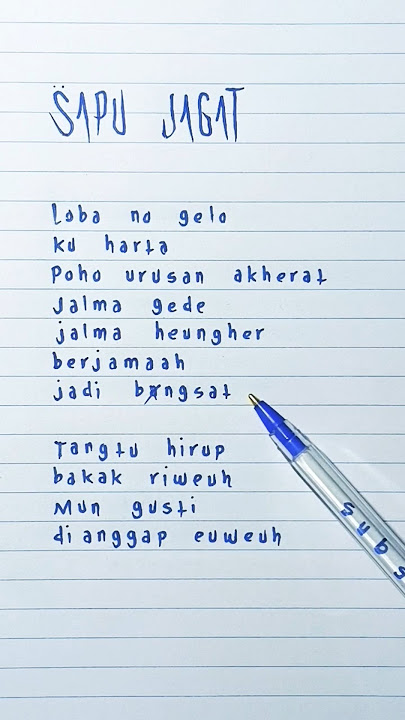 S1PU J1G1T
Loba no gelo
ku harta
Poho urusan akherat
Jalma gede
jalma heungher
berjamaah
jadi bxngsat
Tangtu hirup
bakak riweuh
Mun gusti
di anggap euweuh
subs